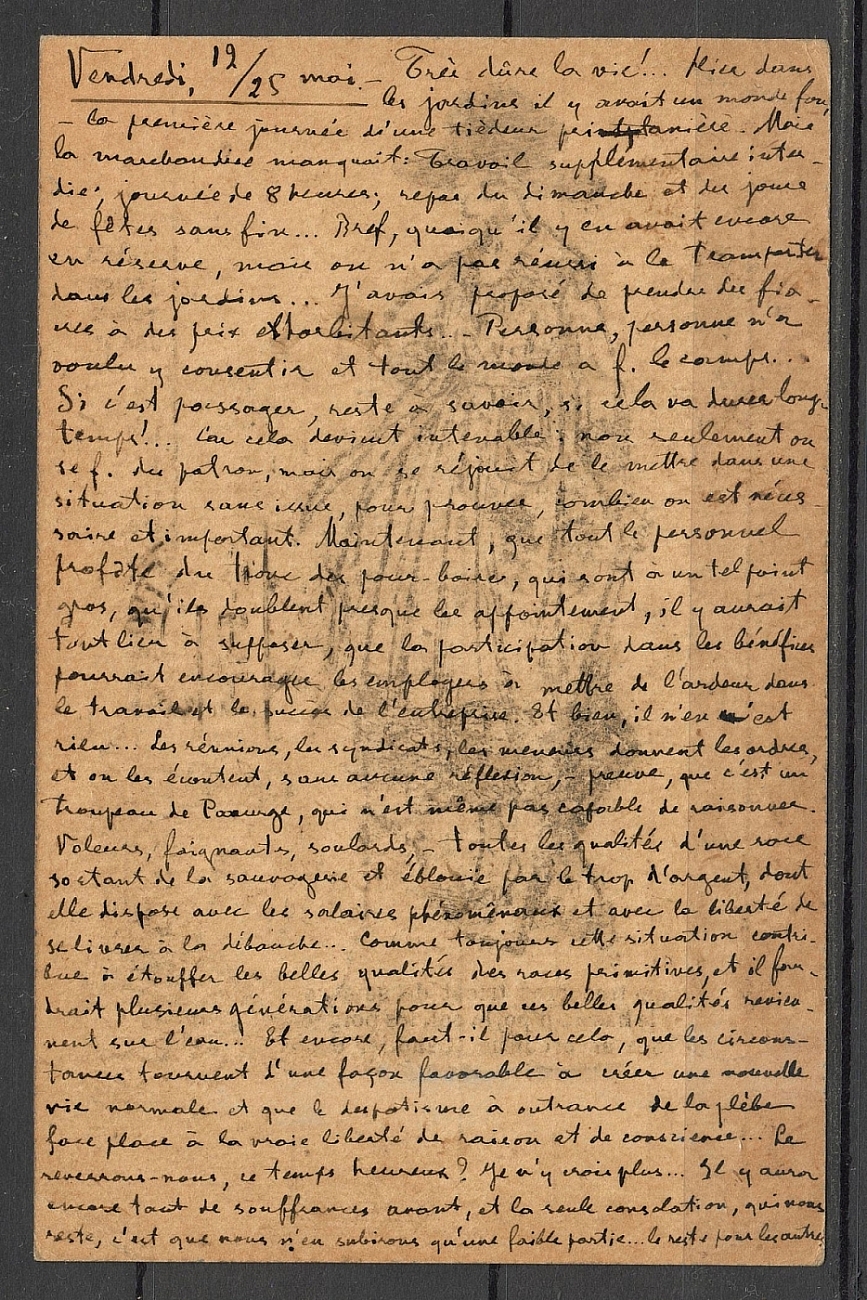 Vendredi, 12/25 mai. – Très dûre la vie!... Hier dans
les jardins il y avait un monde fou,
– la première journée d'une tièdeur printanière. Mais
la marchandise manquait: Travail supplémentaire inter-
die; journée de 8 heures; repos du dimanche et des jours
de fêtes sans fin... Bref, quoiqu'il y en avait encore
en réserve, mais on n'a pas réussi à la transporter
dans les jardins... J'avais proposé de prendre des fia-
cres à des prix exhorbitants... Personne, personne n'a
voulu y consentir et tout le monde a f. le camp...
Si c'est passager, reste à savoir, si cela va durer long-
temps!... Car cela devient intenable: non seulement on
se f. du patron, mais on se réjouit de le mettre dans une
situation sans issue, pour prouver, combien on est néces-
saire et important. Maintenant, que tout le personnel
profite du tronc des pour-boires, qui sont à un tel point
gros, qu'ils doublent presque les appointement, il y aurait
tout lieu à supposer, que la participation dans les bénéfices
pourrait encourager les employés à mettre de l'ardeur dans
le travail et le succès de l'entreprise. Et bien, il n'en est
rien... Les réunions, les syndicats, les meneurs donnent les ordres,
et on les écoutent, sans aucune réflexion, – preuve, que c'est un
troupeau de Panurge, qui n'est même pas capable de raisonner.
Voleurs, faignants, soulards, – toutes les qualités d'une race
sortant de la sauvagerie et éblouie par le trop d'argent, dont
elle dispose avec les salaires phénomènaux et avec la liberté de
se livrer à la débauche... Comme toujours cette situation contri-
bue à étouffer les belles qualités des races primitives, et il fau-
drait plusieurs générations pour que ces belles qualités revien-
nent sur l'eau... Et encore, faut-il pour cela, que les circons-
tances tournent d'une façon favorable à créer une nouvelle
vie normale et que le despotisme à outrance de la plèbe
fasse place à la vraie liberté de raison et de conscience... Le
reverrons-nous, ce temps heureux? Je n'y crois plus... Il y aura
encore tant de souffrances avant, et la seule consolation, qui nous
reste, c'est que nous n'en subirons qu'une faible partie... le reste pour les autres